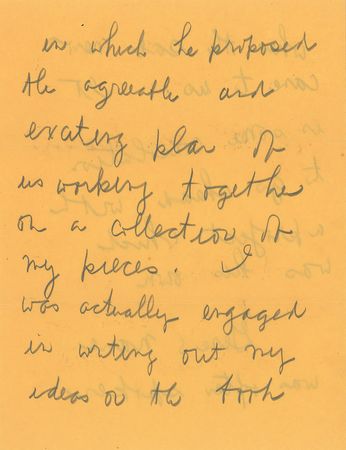 in which he proposed
the agreeable and
exciting plan of
us working together
on a collection of
my pieces. I
was actually engaged
in writing out my
ideas on the